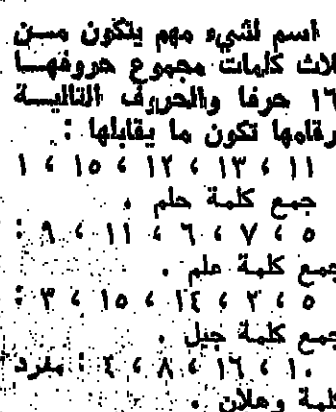 اسم لشيء مهم يتكون مسن
لاث كلمات مجموع حروفهسا
١٦ حرفا والحروف التاليسة
رقامها تكون ما يقابلها :
١١ ، ١٣ ، ١٢ ، ١٥ ، ١
جمع كلمة حلم .
٥ ، ٧ ، ٦ ، ١١ ، ٩ :
جمع كلمة علم .
٥ ، ٢ ، ١٤ ، ١٥ ، ٣ :
جمع كلمة جبل .
١٠ ، ١٦ ، ٨ ، ٤ : مفرد
لمة وعلان .